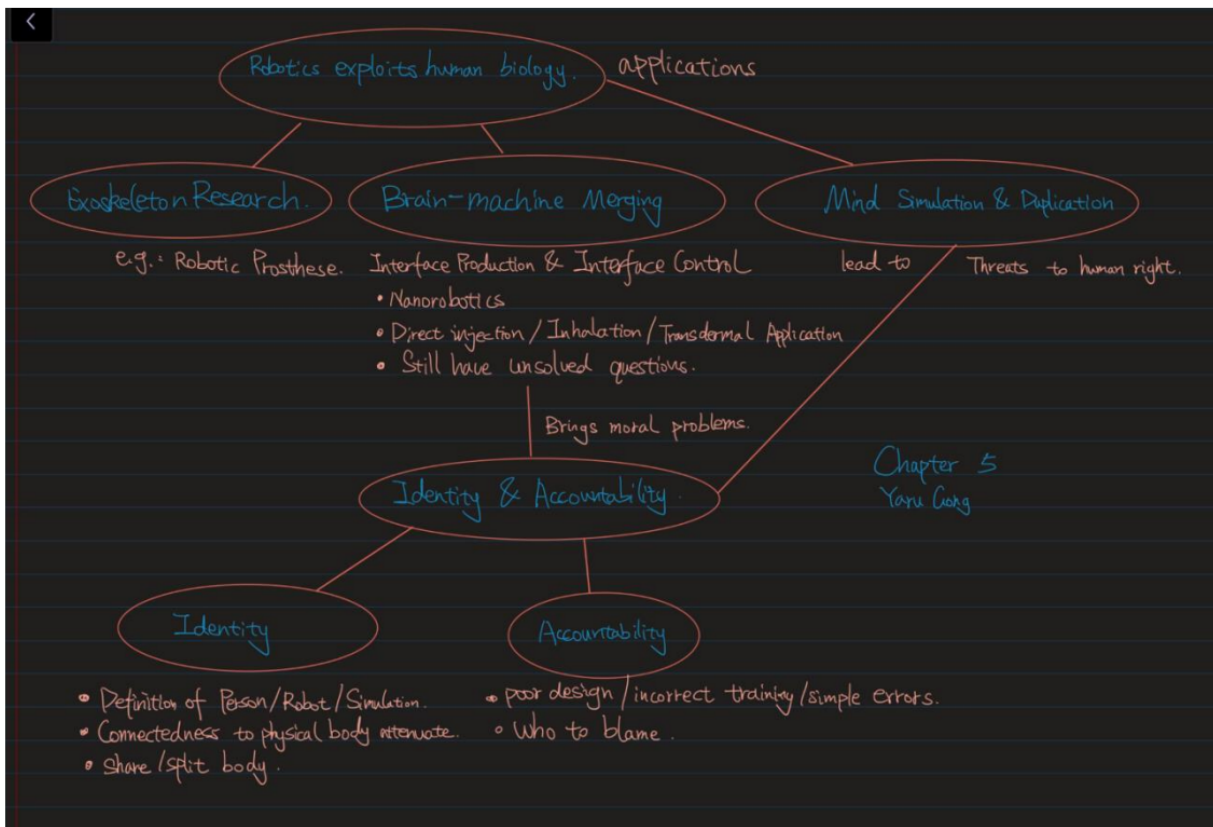 Robotics exploits human biology.
applications
Exoskeleton Research.
Brain-machine Merging
Mind Simulation & Duplication
e.g.: Robotic Prosthese.
Interface Production & Interface Control
• Nanorobotics
• Direct injection / Inhalation / Transdermal Application
• Still have unsolved questions.
lead to
Threats to human right.
Brings moral problems.
Identity & Accountability.
Chapter 5
Yaru Gong
Identity
• Definition of Person/Robot/Simulation.
• Connectedness to physical body attenuate.
• Share/split body.
Accountability
• poor design/incorrect training/simple errors.
• Who to blame.